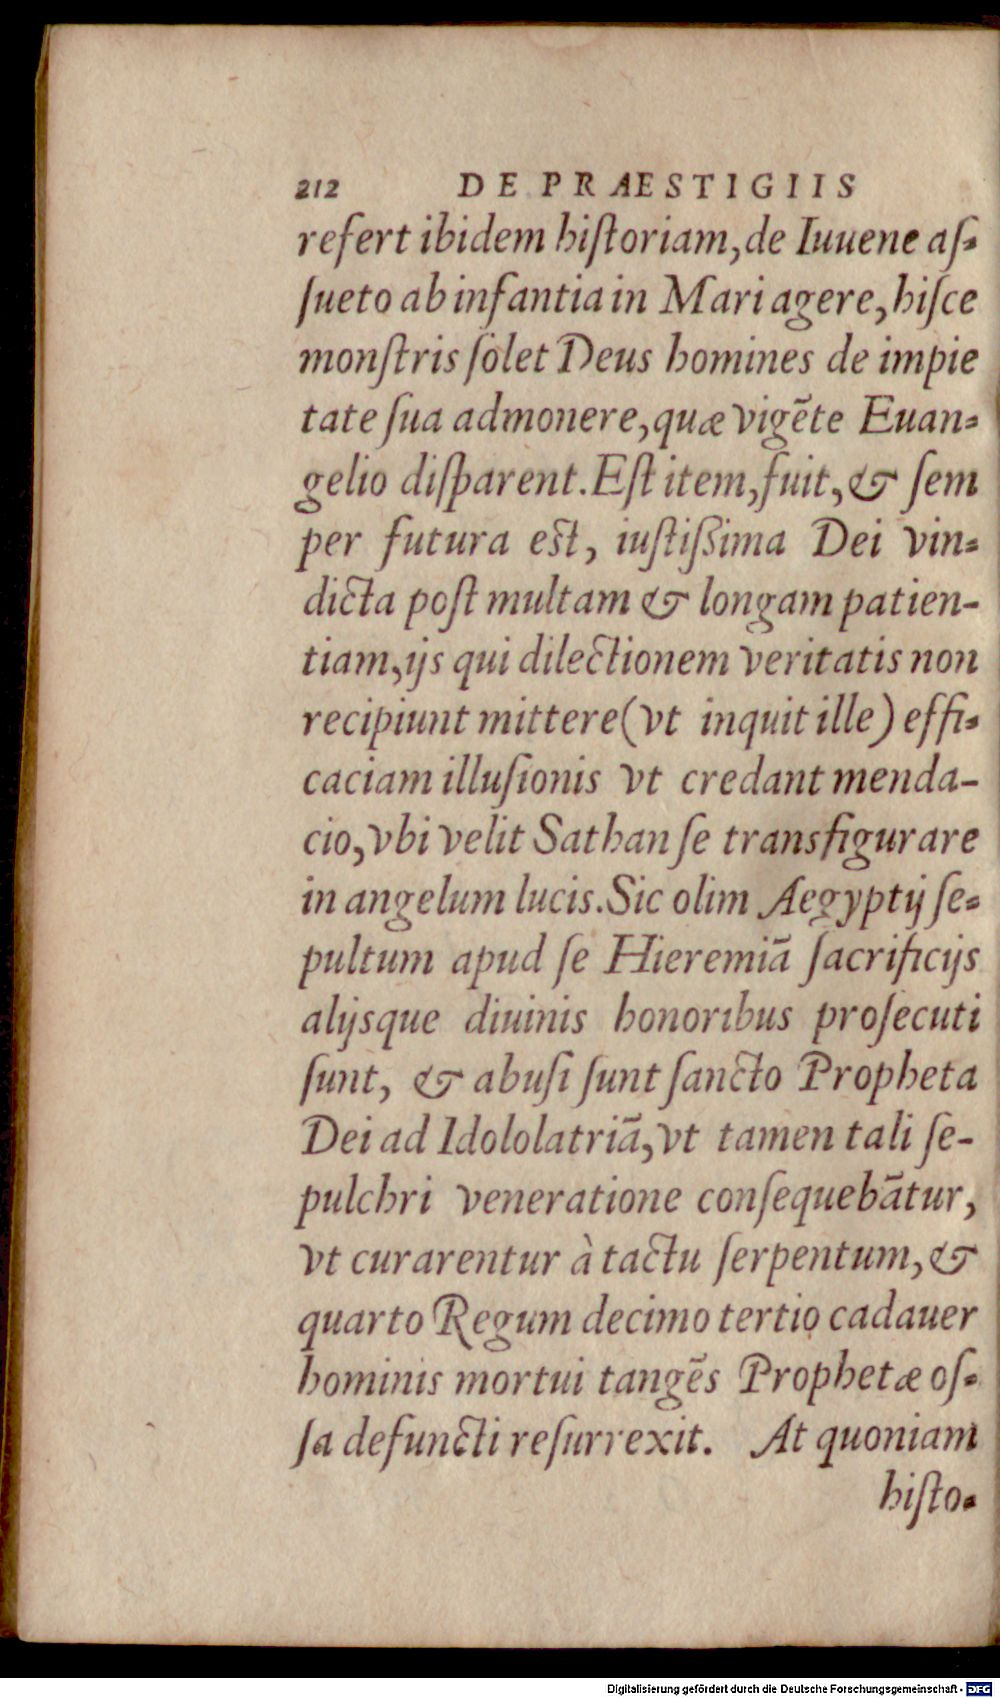 212 DE PRAESTIGIIS
refert ibidem hiſtoriam, de Iuuene aſ-
ſueto ab infantia in Mari agere, hiſce
monſtris ſolet Deus homines de impie
tate ſua admonere, quæ vigēte Euan-
gelio diſparent. Eſt item, fuit, & ſem
per futura est, iuſtiſsima Dei vin-
dicta poſt multam & longam patien-
tiam, ijs qui dilectionem veritatis non
recipiunt mittere (vt inquit ille) effi-
caciam illuſionis vt credant menda-
cio, vbi velit Sathan ſe transfigurare
in angelum lucis. Sic olim Aegyptij ſe-
pultum apud ſe Hieremiā ſacrificijs
alijsque diuinis honoribus proſecuti
ſunt, & abuſi ſunt ſancto Propheta
Dei ad Idololatriā, vt tamen tali ſe-
pulchri veneratione conſequebātur,
vt curarentur à tactu ſerpentum, &
quarto Regum decimo tertio cadauer
hominis mortui tangēs Prophetæ oſ-
ſa defuncti reſurrexit. At quoniam
hiſto-
Digitalisierung gefördert durch die Deutsche Forschungsgemeinschaft - DFG